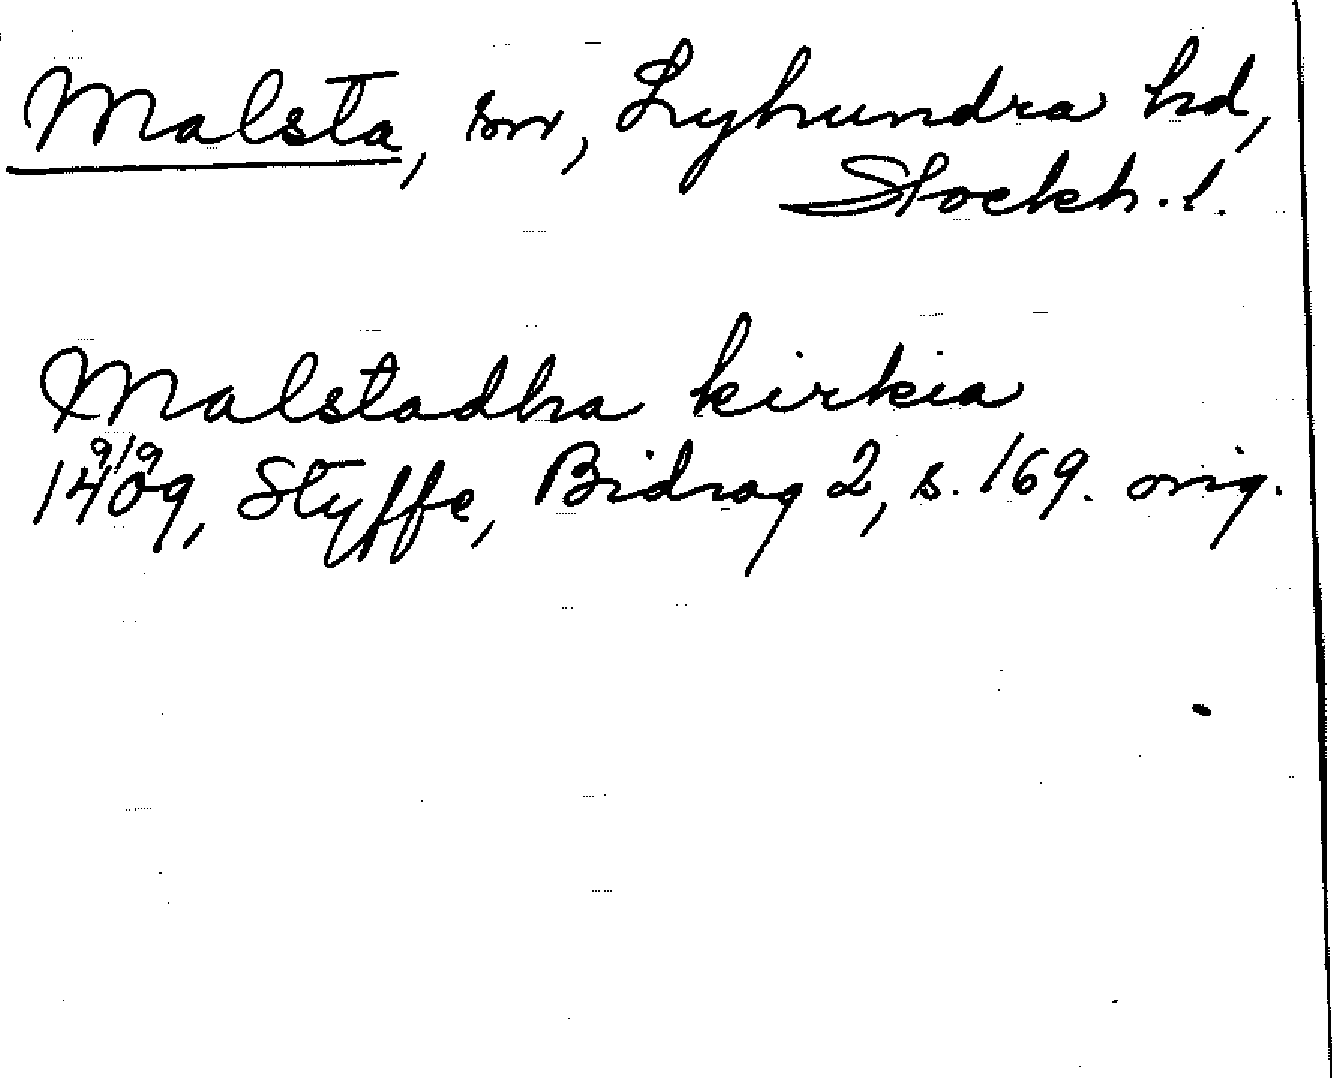 Malsta, sn, Lyhundra hd,
Stockh. l.
Malstadha kirkia
9/9
1409, Styffe, Bidrag 2, s. 169. orig.